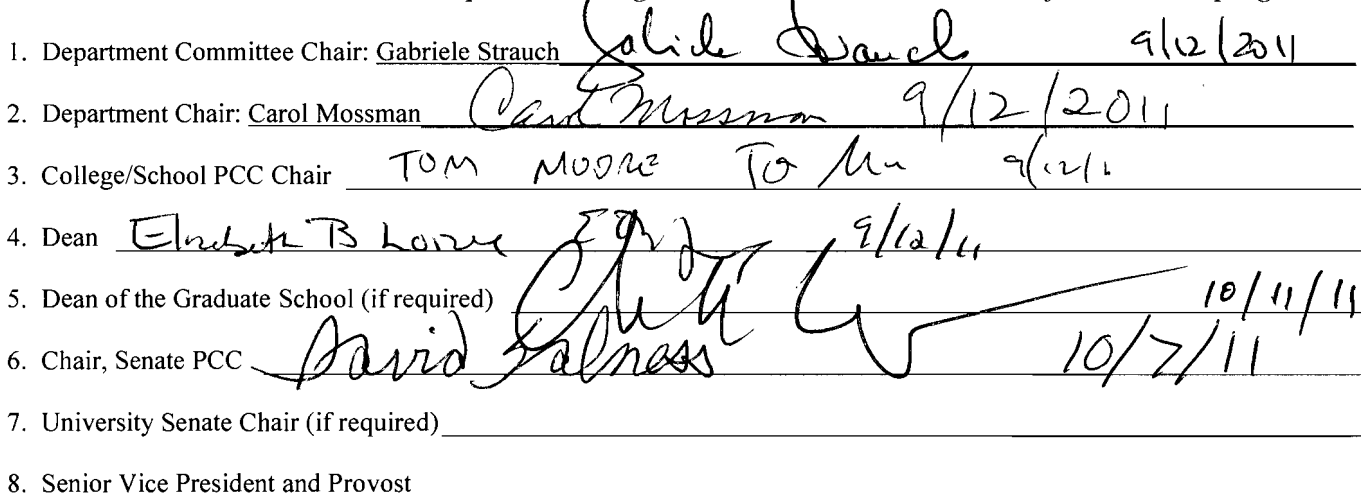 1. Department Committee Chair: Gabriele Strauch 9/12/2011
2. Department Chair: Carol Mossman Carol Mossman 9/12/2011
3. College/School PCC Chair TOM MOORE 9/12/1
4. Dean Elizabeth B Loizeaux 9/12/11
5. Dean of the Graduate School (if required) 10/11/11
6. Chair, Senate PCC David Salness 10/7/11
7. University Senate Chair (if required)
8. Senior Vice President and Provost